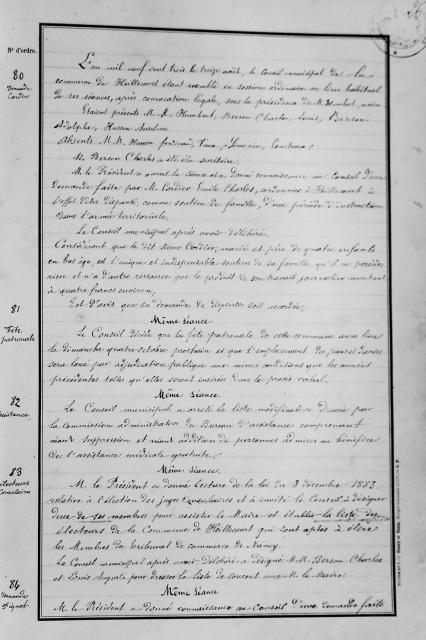 N° d'ordre.
80
Demande
Cordier
L'an mil neuf cent trois le treize août, le Conseil municipal de la
commune de Heillecourt étant rassemblé en session ordinaire au lieu habituel
de ses séances, après convocation légale, sous la présidence de M. Humbert, maire
Etaient présents M. M. Humbert, Berson Charles, Louis, Berson
Adolphe, Husson Anselme
Absents M. M. Husson ferdinand,
M. Berson Charles a été élu secrétaire.
M. le Président a ouvert la séance et a donné connaissance au Conseil d'une
demande faite par M. Cordier Emile Charles, cordonnier à Heillecourt à
l'effet d'être dispensé, comme soutien de famille, d'une période d'instruction
dans l'armée territoriale.
Le Conseil municipal après avoir délibéré.
Considérant que le dit sieur Cordier, marié et père de quatre enfants
en bas âge, est l'unique et indispensable soutien de sa famille, qu'il ne possède
rien et n'a d'autre ressource que le produit de son travail journalier montant
à quatre francs environ,
Est d'avis que sa demande de dispense soit accordée.
Même séance.
81
Fête
patronale
Le Conseil décide que la fête patronale de cette commune aura lieu
le dimanche quatre octobre prochain et que l'emplacement des jeux et danses
sera loué par adjudication publique aux mêmes conditions que les années
précédentes telles qu'elles seront insérées dans le procès verbal.
Même séance
82
Assistance
Le Conseil municipal a arrêté la liste modificative dressée par
la Commission administrative du Bureau d'assistance comprenant
néant suppression et néant addition de personnes admises au bénéfice
de l'assistance médicale gratuite.
Même séance.
83
électeurs
Consulaires
M. le Président a donné lecture de la loi du 8 décembre 1883
relative à l'élection des juges consulaires et a invité le Conseil à désigner
deux de ses membres pour assister le Maire et établir la liste des
électeurs de la Commune de Heillecourt qui sont aptes à élire
les Membres du tribunal de commerce de Nancy.
Le Conseil municipal après avoir délibéré a désigné M. M. Berson Charles
et Louis Auguste pour dresser la liste de concert avec M. le Maire.
Même séance
84
Demande
M. le Président a donné connaissance au Conseil d'une demande faite